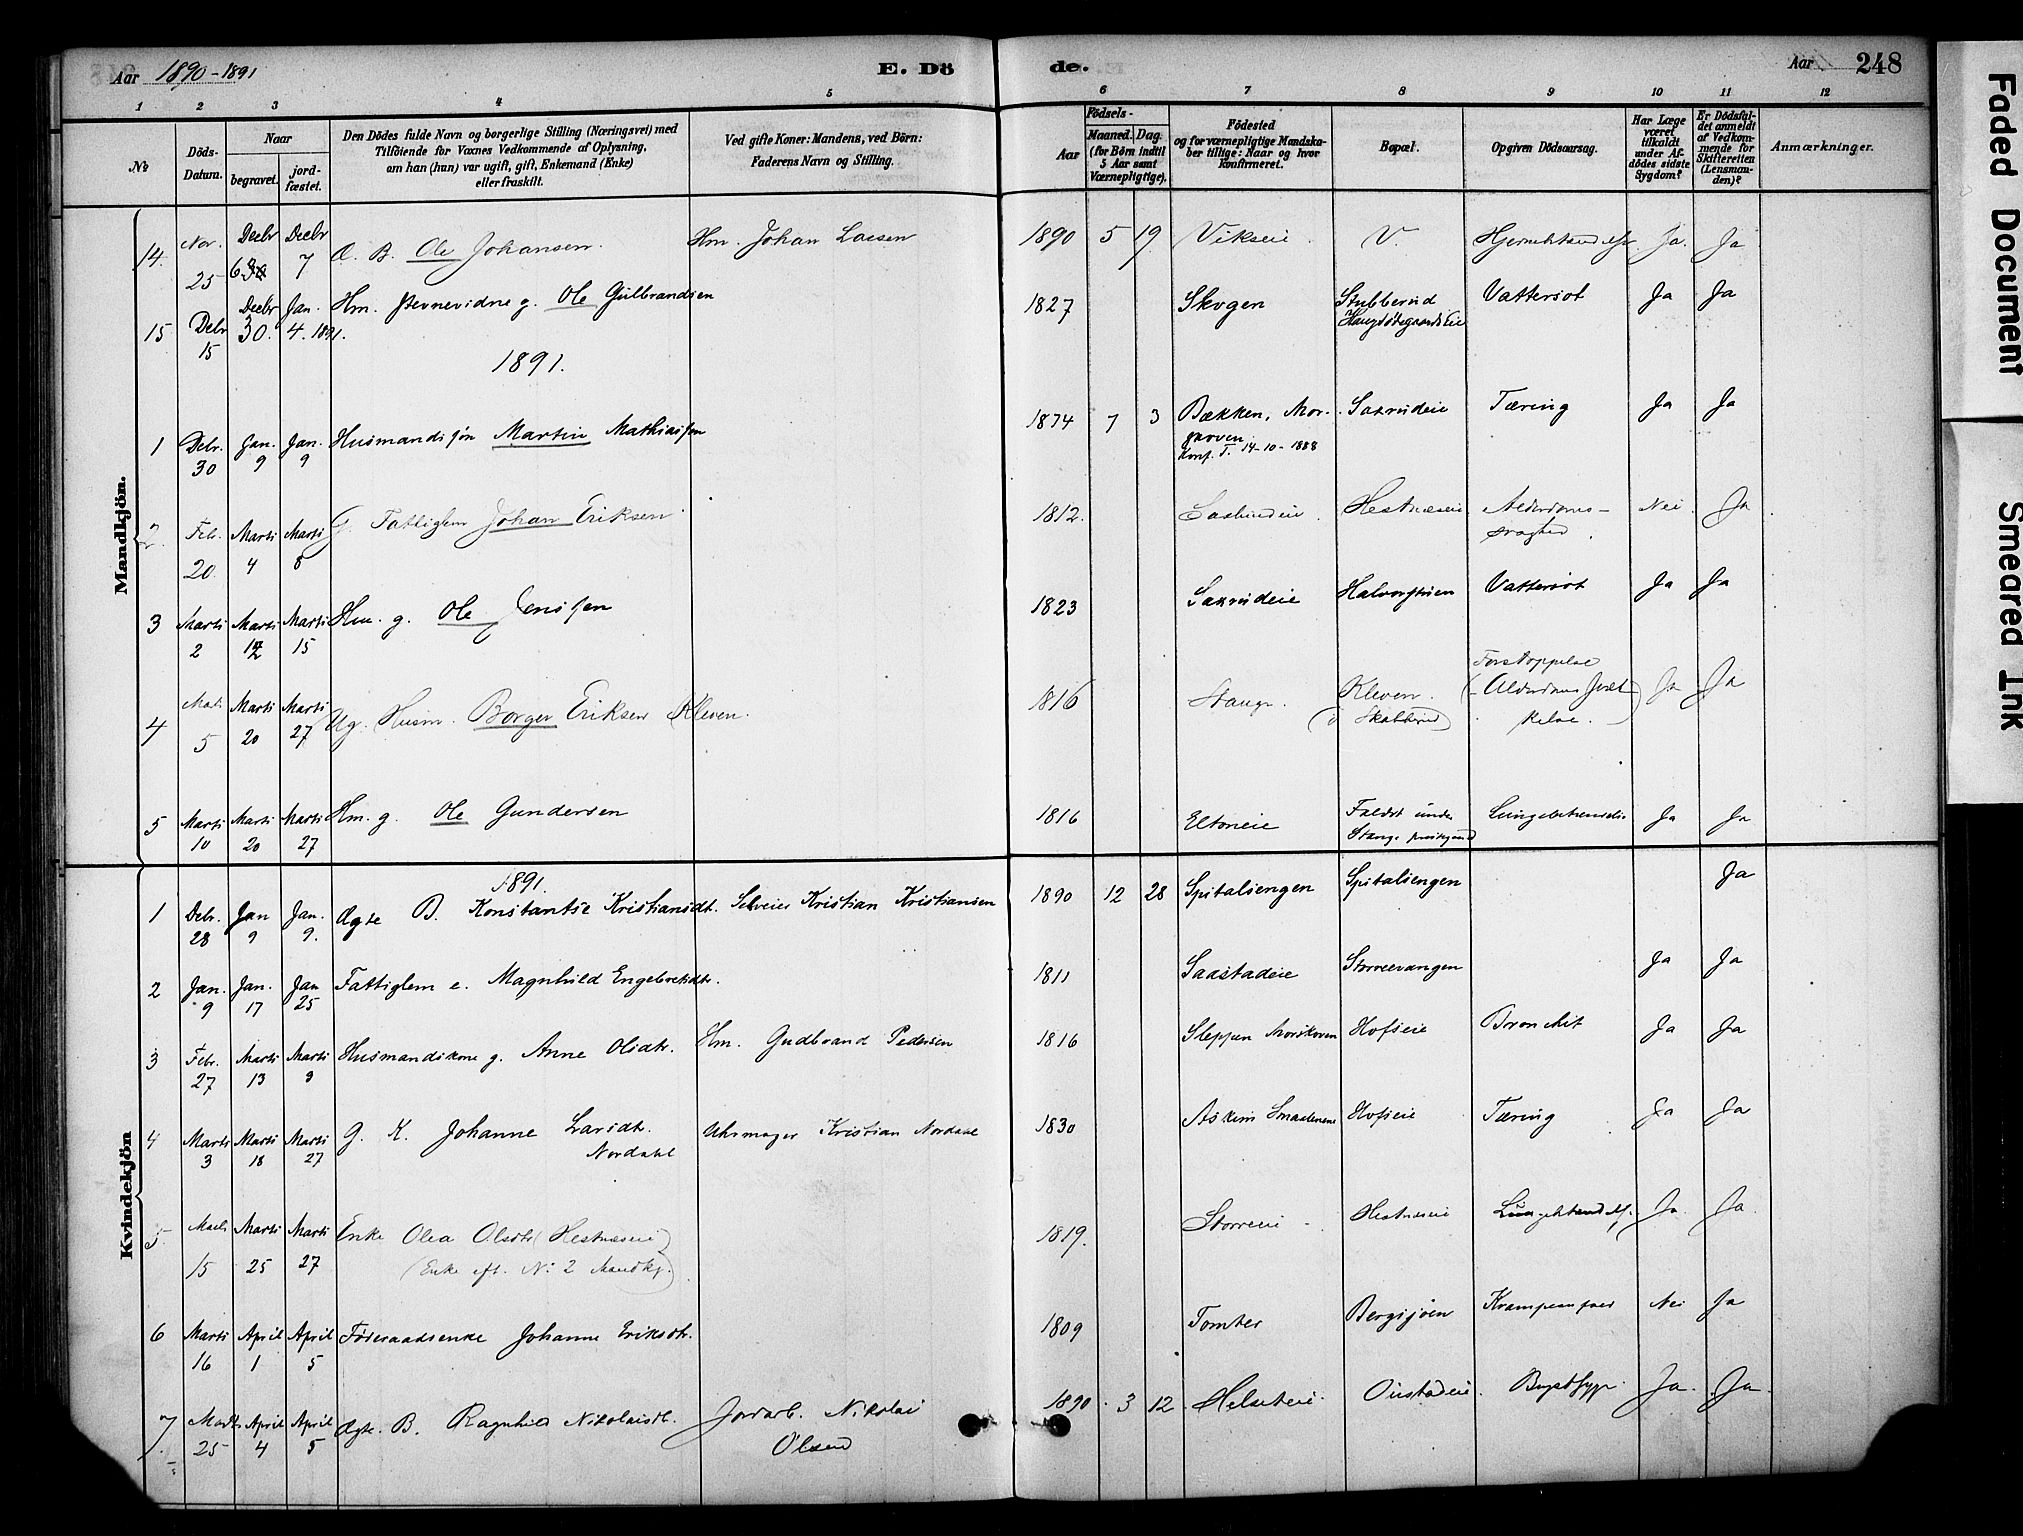 Aar 1890-1891
E. Dö
de.
Aar
248
1 2 3 4 5 6 7 8 9 10 11 12
No
Döds-
Datum.
Naar
begravet.
jord-
fæstet.
Den Dödes fulde Navn og borgerlige Stilling (Næringsvei) med
Tilföiende for Voxnes Vedkommende af Oplysning,
om han (hun) var ugift, gift, Enkemand (Enke)
eller fraskilt.
Ved gifte Koner: Mandens, ved Börn:
Faderens Navn og Stilling.
Födsels-
Aar
Maaned. Dag.
(for Börn indtil
5 Aar samt
Værnepligtige).
Födested
og for værnepligtige Mandska-
ber tillige: Naar og hvor
konfirmeret.
Bopæl.
Opgiven Dödsaarsag.
Har Læge
været
tilkaldt
under Af-
dödes sidste
Sygdom?
Er Dödsfal-
det anmeldt
af Vedkom-
mende for
Skifteretten
(Lensman-
den)?
Anmærkninger.
Mandkjön.
14. Nov. 25 Decbr 6 Decbr 7 Æ. B. Ole Johansen. Hm. Johan Larsen 1890 5 19 Vikseie. V. Ja. Ja
15 Debr 15 Decbr 30. Jan. 4. 1891. Hm. Stevnevidne g. Ole Gulbrandsen 1827 Skogen Stubberud Vattersot Ja Ja
1891.
1 Debr. 30 Jan. 9 Jan. 9 Husmandssøn Martin Mathiassen 1874 7 3 Bækken, Mor- Saxrudeie Tæring Ja Ja
skoven
Konf. T. 14-10-1888
2. Feb. 20. Marti 4 Marti 8 G. Fattiglem Johan Eriksen 1812. Hestnæseie Alderdoms- Nei. Ja
svaghed.
3 Marti 2 Marti 12 Marti 15 Hm. g. Ole Jenssen 1823 Saxrudeie Vattersot Ja Ja
4 Marti 5 Marti 20 Marti 27 Ug. Husm. Borger Eriksen Kleven. 1816 Stange. Kleven. Forstoppelse Ja Ja
5 Marti 10 Marti 20 Marti 27 Hm. g. Ole Gundersen 1816 Eltoneie Faldet under Lungebetændelse Ja Ja
Stange præstegaard
Kvindekjön
1891.
1 Debr. 28 Jan 9 Jan. 9. Ægte B. Konstantse Kristiansdt. Selveier Kristian Kristiansen 1890 12 28 Spitalsengen Spitalsengen Ja
2 Jan. 9 Jan. 17 Jan 25 Fattiglem e. Magnhild Engebretsdtr. 1811 Saastadeie Storreevangen Ja Ja
3 Febr. 27 Marti 13 Marti 8 Husmandskone g. Anne Olsdtr. Hm. Gudbrand Pedersen 1816 Sleppen Morskoven Hofseie Bronchit Ja Ja
4 Marti 3 Marti 18 Marti 27 G. K. Johanne Larsdtr. Uhrmager Kristian Nordahl 1830 Askim Smaalenene Hofseie Tæring Ja Ja
Nordahl
5 Marti 15 Marti 25 Marti 27 Enke Olea Olsdtr (Hestnæseie) 1819. Storreeie Hestnæseie Ja. Ja.
(Enke eft. No 2 Mandkj.)
6 Marti 16 April 1 April 5 Føderaadsenke Johanne Eriksdtr. 1809 Tomter Bergsjøen Nei Ja
7. Marti 25 April 4 April 5 Ægte. B. Ragnhild Nikolaisdt. Jordarb. Nikolai 1890. 3 12 Helseteie Oustadeie. Brystsyge. Ja. Ja.
Olsen
Faded Document
Smeared Ink